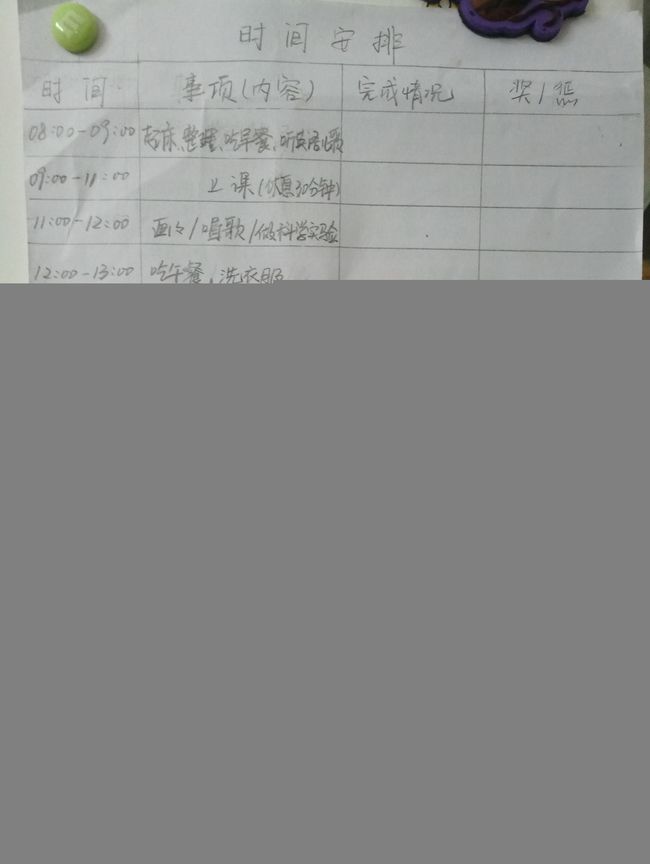 时间安排
时间 事项(内容) 完成情况 奖/惩
08:00-09:00 起床、整理、吃早餐、听英语儿歌
09:00-11:00 上课(休息30分钟)
11:00-12:00 画々/唱歌/做科学实验
12:00-13:00 吃午餐,洗衣服